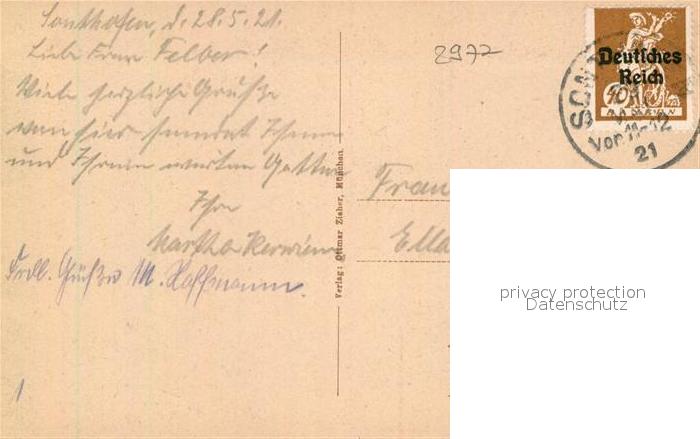 Sonthofen, d. 28.5.21.
Liebe Frau Felber!
Viele herzliche Grüße
von hier sendet Ihnen
und Ihrem werten Gatten
Ihre
Martha
Frdl. Grüße M. Hoffmann.
1
Verlag: Ottmar Zieher, München.
2972
Deutsches
Reich
40
BAYERN
SONT
Vor. 11-12
21
Frau
Ella
privacy protection
Datenschutz